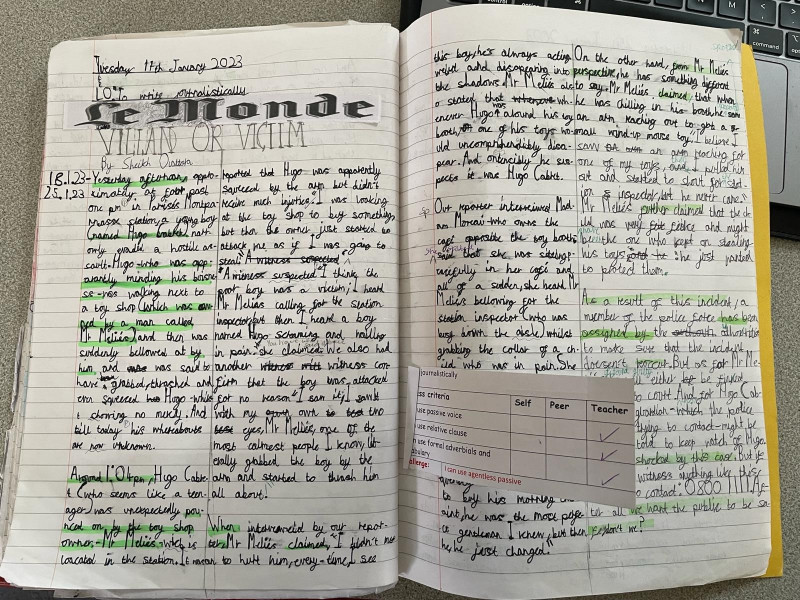 Tuesday 17th January 2023
LO: To write journalistically
Le Monde
VILLAN OR VICTIM
By Sheikh Ouattara
18.1.23
25.1.23
Yesterday afternoon, appro-
ximately at four past
one pm in Parises Montpa-
rnasse station, a young boy
(named Hugo Cabret) narr-
owly evade a hostile as-
sault. Hugo who was app-
arantly minding his busine
ss-was walking next to
a toy shop (which was ow-
ned by a man called
Mr Meliès) and then was
suddenly bellowed at by
him, and was said to
have grabbed, thrashed and
even squeezed Hugo whils-
t showing no mercy. And
till today his whereabouts
are now unknown.
Around 1:04pm, Hugo Cabre-
t (who seems like a teen-
ager) was unexpectedly pou-
nced on by the toy shop
owner-Mr Meliès-who is
loacated in the station. It
reported that Hugo was apparently
squeezed by the arm but didn't
receive much injuries. I was looking
at the toy shop to buy something,
but then the owner just started to
attack me as if I was going to
steal."
A witness suspected "I think the
poor boy was a victim, I heard
Mr Meliès calling for the station
inspector but then I heard a boy
named Hugo screaming and howling
in pain. she claimed. We also had
another witness con-
firm that the boy was attacked
for no reason "I saw it, I saw it
with my own two
eyes, Mr Meliès, one of the
most calmest people I know, lit-
erally grabbed the boy by the
arm and started to thrash him
all about.
When interviewed by our repor-
ter, Mr Meliès claimed, "I didn't
mean to hurt him, every-time I see
this boy, he's always acting
weird and disapearing into
the shadows. Mr Meliès als-
o stated that when-
enever Hugo was around his toy
booth, one of his toys wo-
uld uncomprehendibly disa-
pear. And entericly he sus-
pects it was Hugo Cabret.
Our reporter interviewed Mad-
am Moreau who owns the
café opposite the toy booth
said that she was sitting p-
eacefully in her café and
all of a sudden, she heard Mr
Meliès bellowing for the
station inspector (who was
busy) down the aisle, whilst
grabbing the collar of a ch-
ild who was in pain. She
to buy his morning
aint, he was the most
ce gentleman I knew, but then
he, he just changed."
On the other hand, from Mr Meliès
perspective, he has something different
to say. Mr Meliès claimed, that when
he was chilling in his booth, he saw
an arm reaching out to got a
small wind-up mouse toy." I believe I
saw an arm reaching for
one of my toys, and I pulled him
out and started to shout for stat-
ion's inspector, but he never came."
Mr Meliès further claimed that the ch-
ild was very petite and might
be the one who kept on stealing
his toys he just wanted
to protect them.
As a result of this incident, a
member of the police force has been
assigned by the authorities
to make sure that the incident
doesn't reoccur. But as for Mr Me-
either be fined
to court. And for Hugo Cab-
which the
trying to contact-might be
told to keep watch of Hugo.
shocked by this case. But if
witness anything like these
contact: 0800 1111. Af-
ter all we want the public to be sa-
fe, don't we?
journalistically
ss criteria Self Peer Teacher
use passive voice
use relative clause ✓
use formal adverbials and ✓
bulary
allenge: I can use agentless passive ✓
command
option